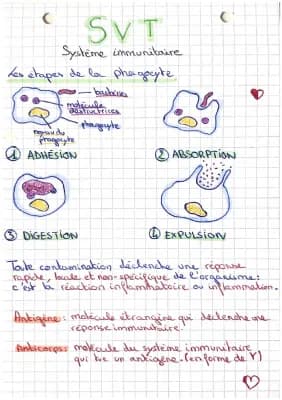 SVT
Système immunitaire
Les étapes de la phagocyte
bactéries
molécule
destructrices
phagocyte
noyau du
phagocyte
① ADHÉSION
② ABSORPTION
③ DIGESTION
④ EXPULSION
Toute contamination déclenche une réponse
rapide, locale et non-spécifique de l'organisme:
c'est la réaction inflammatoire ou inflammation.
Antigène : molécule étrangère qui déclenche une
réponse immunitaire.
Anticorps : molécule du système immunitaire
qui lie un antigène. (en forme de Y)